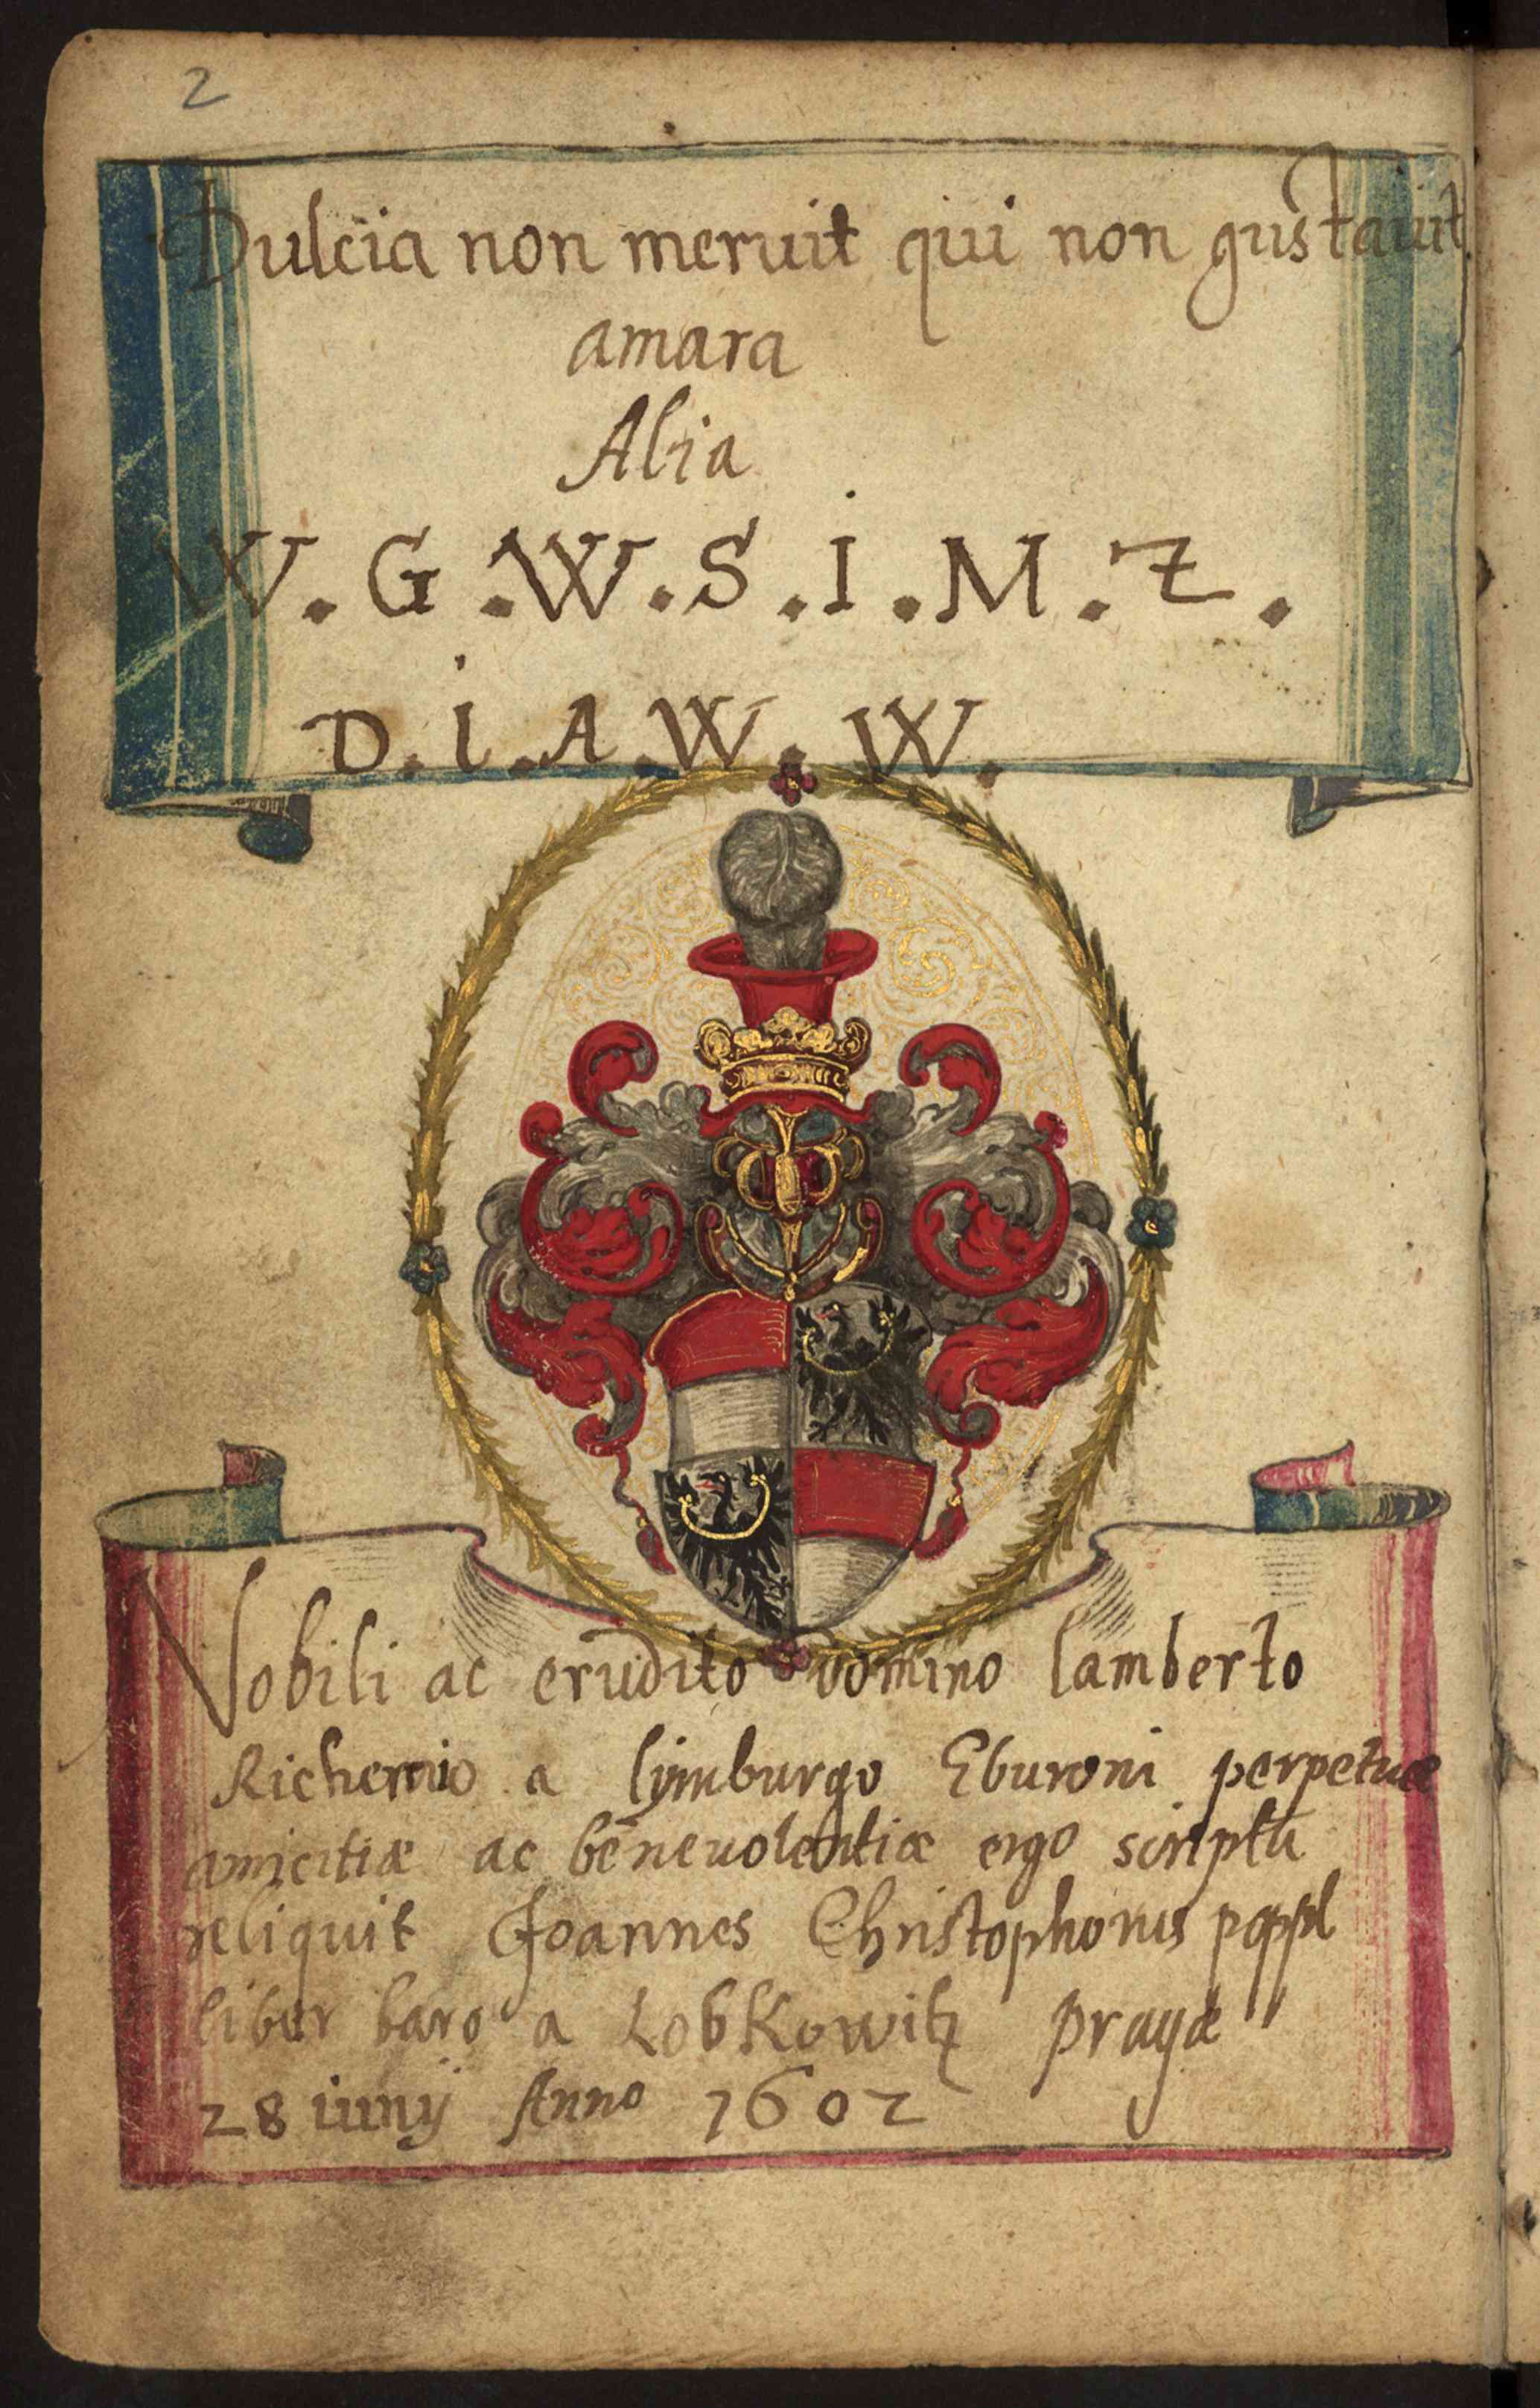 2
Dulcia non meruit qui non gustauit
amara
Alia
W. G. W. S. I. M. Z.
D. I. A. W. W.
Nobili ac erudito domino lamberto
a lymburgo Eburoni perpetuæ
amicitiæ ac beneuolentiæ ergo scriptū
reliquit Joannes Christophorus poppl
liber baro a Lobkowitz pragæ
28 iunij Anno 1602